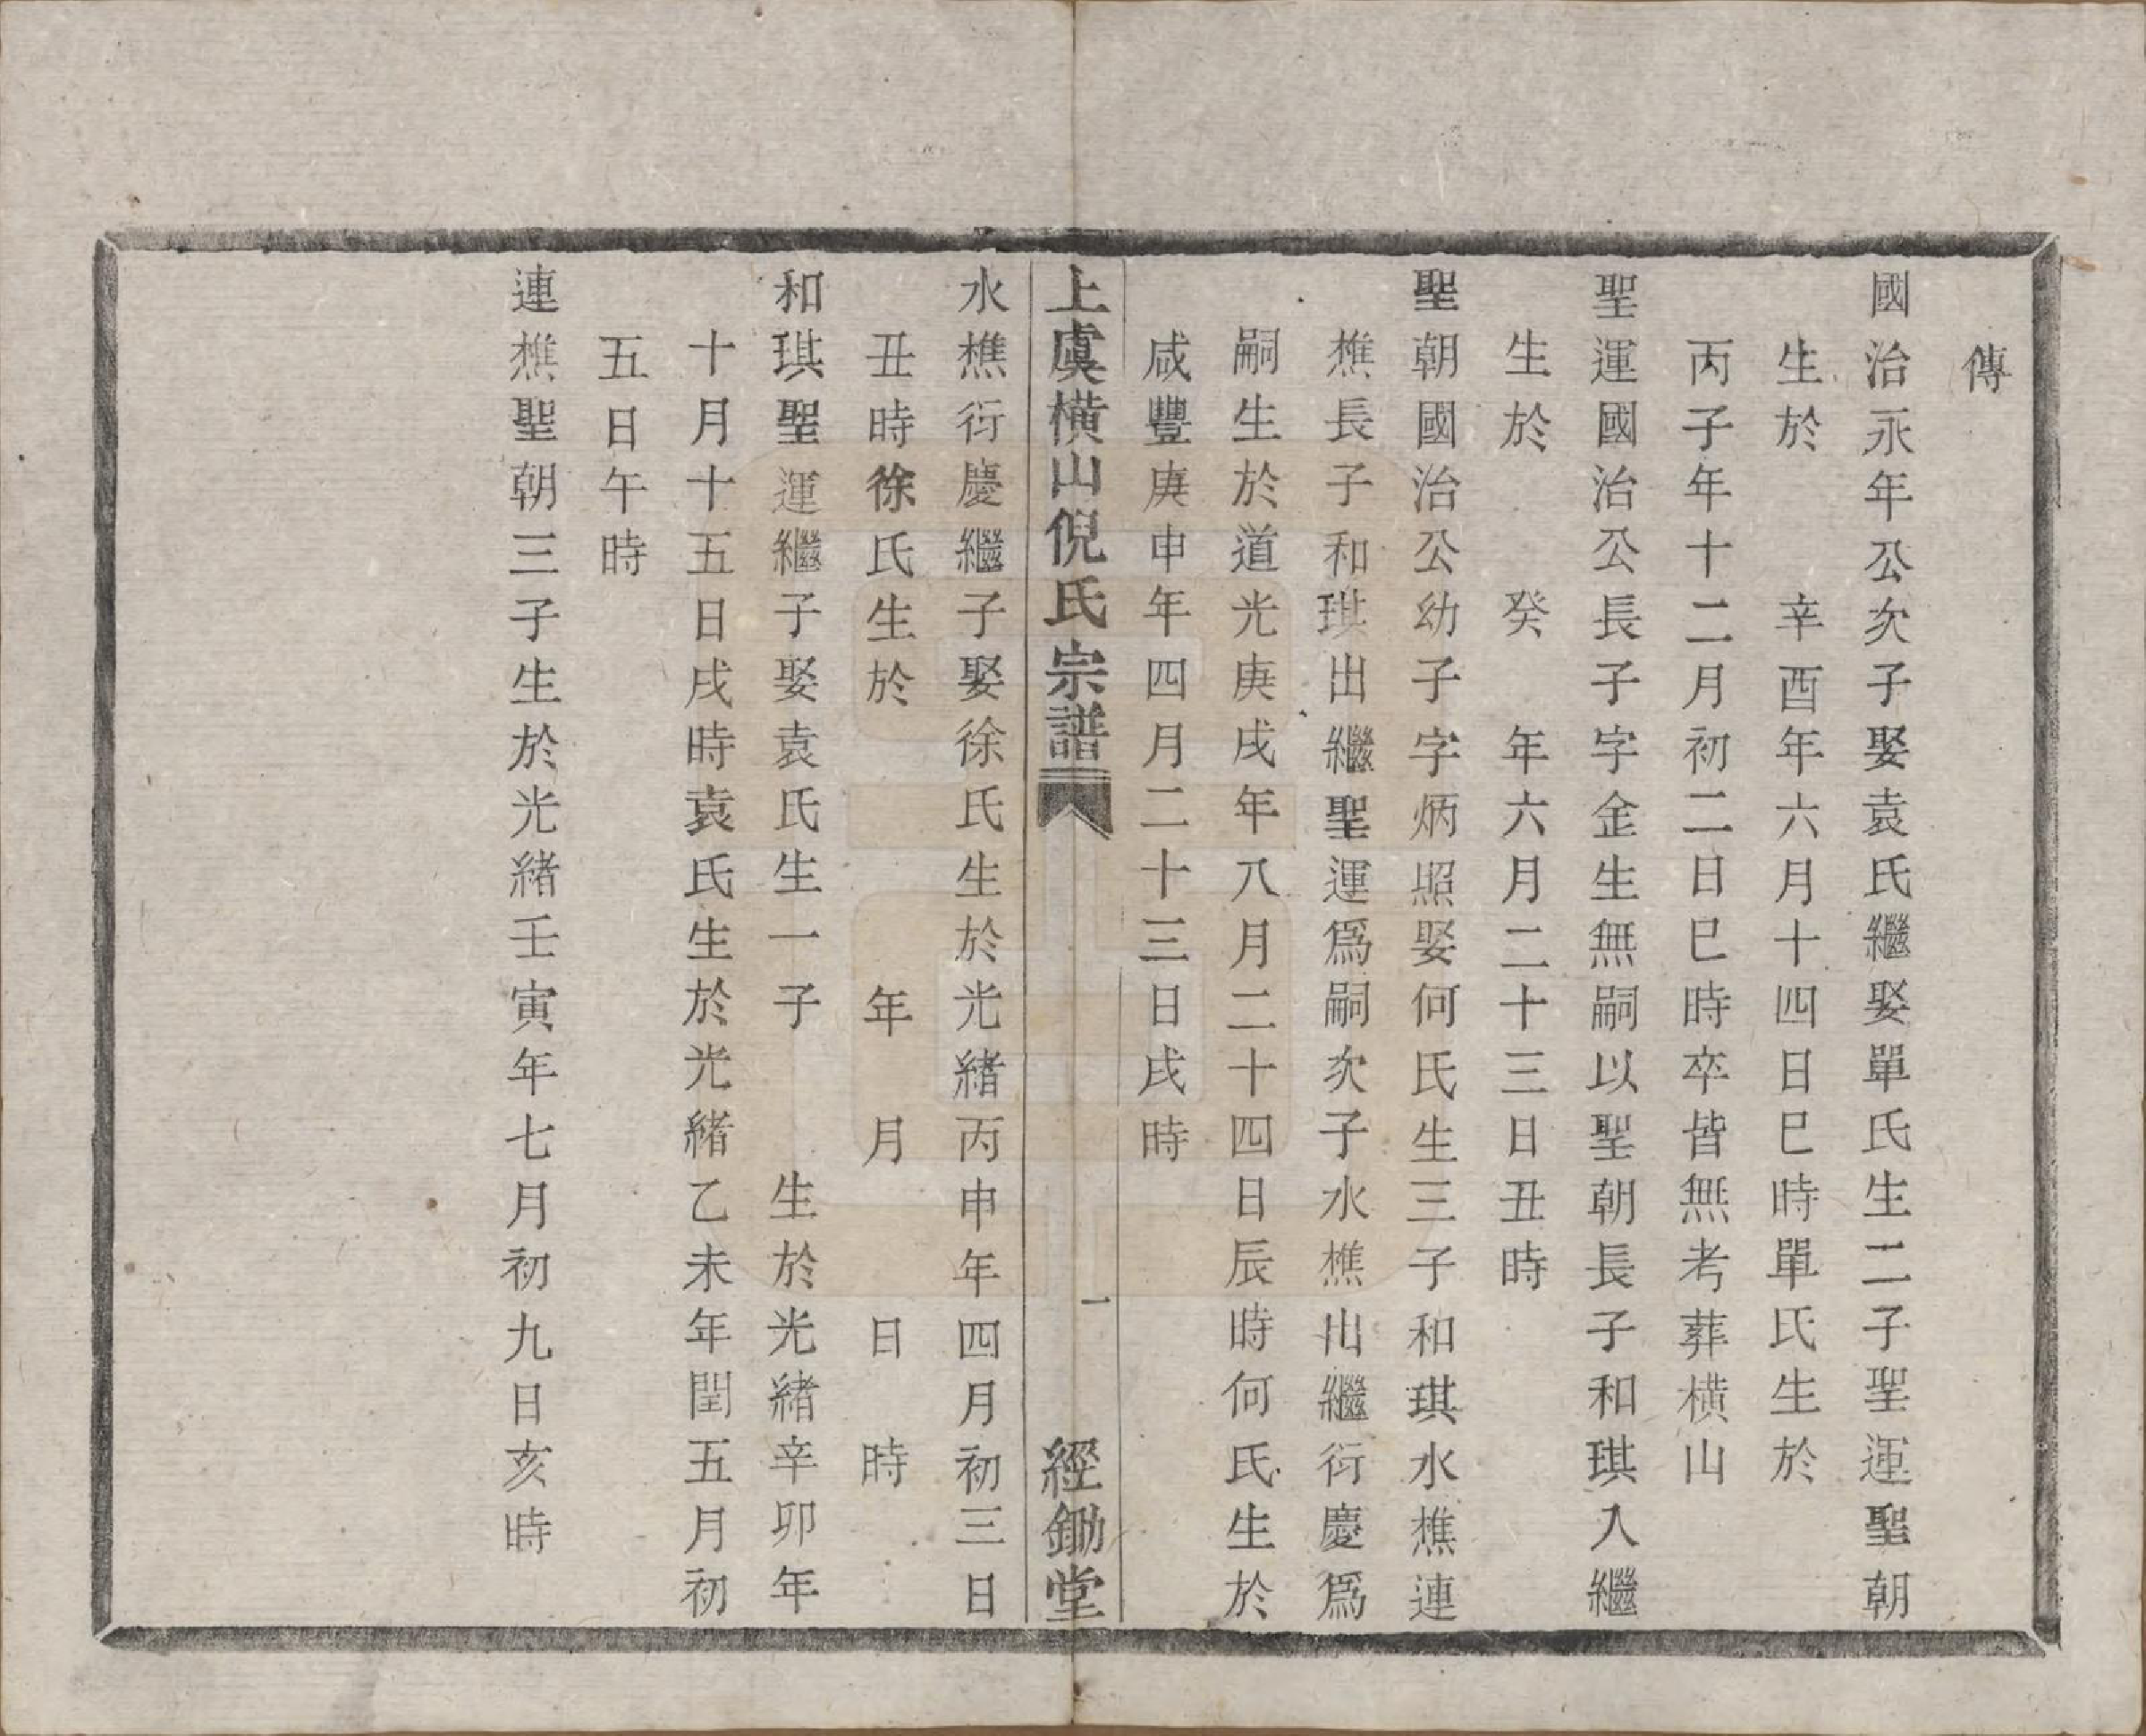 傳
國治永年公次子娶袁氏繼娶單氏生二子聖運聖朝
生於　　辛酉年六月十四日巳時單氏生於
丙子年十二月初二日巳時卒皆無考葬橫山
聖運國治公長子字金生無嗣以聖朝長子和琪入繼
生於　　癸　年六月二十三日丑時
聖朝國治公幼子字炳照娶何氏生三子和琪水樵連
樵長子和琪出繼聖運爲嗣次子水樵出繼衍慶爲
嗣生於道光庚戌年八月二十四日辰時何氏生於
咸豐庚申年四月二十三日戌時
上虞橫山倪氏宗譜　一　經鋤堂
水樵衍慶繼子娶徐氏生於光緒丙申年四月初三日
丑時徐氏生於　　年　月　　日　時
和琪聖運繼子娶袁氏生一子　　生於光緒辛卯年
十月十五日戌時袁氏生於光緒乙未年閏五月初
五日午時
連樵聖朝三子生於光緒壬寅年七月初九日亥時